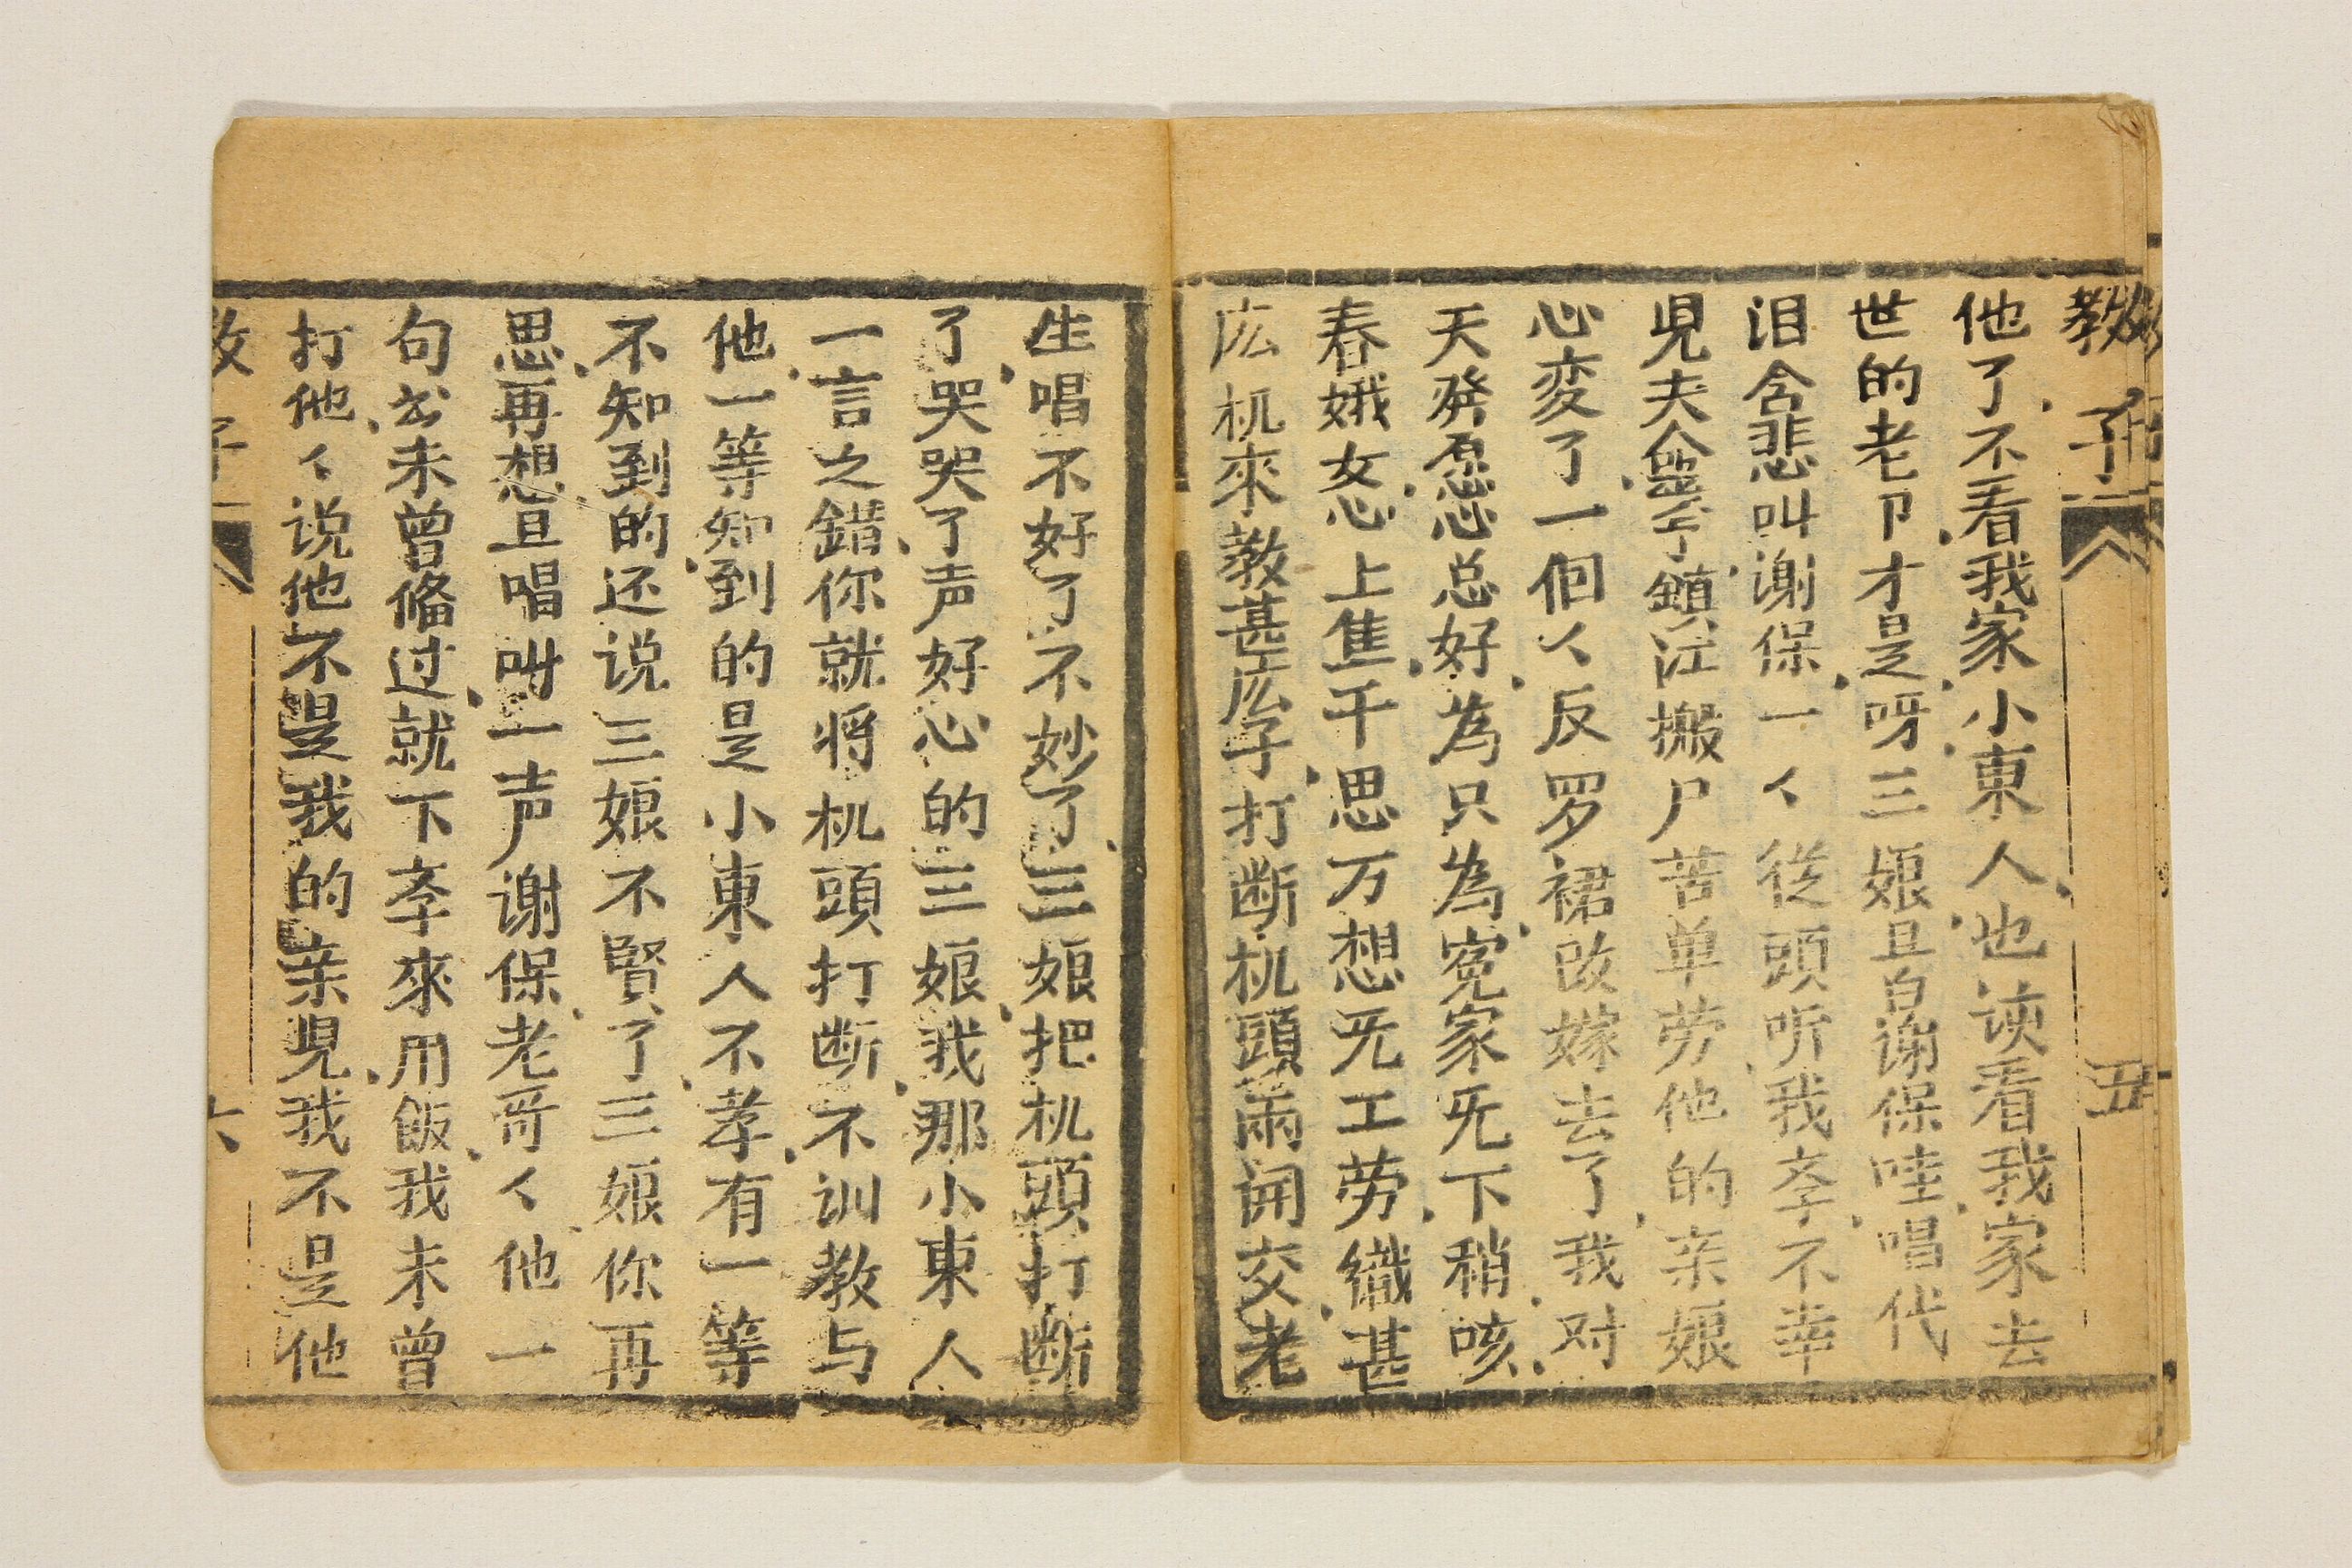 教子 五
他了不看我家小東人也该看我家去
世的老卩才是呀三娘旦白谢保哇唱代
泪含悲叫谢保一〻従頭听我李不幸
児夫命丧了鎮江搬尸苦单劳他的亲娘
心変了一個〻反罗裙改嫁去了我对
天発愿心总好為只為寃家旡下稍咳
春娥女心上焦千思万想旡工劳織甚
庅机來教甚庅子打断机頭両開交老
生唱不好了不妙了三娘把机頭打断
了哭哭了声好心的三娘我那小東人
一言之錯你就将机頭打断不训教与
他一等知到的是小東人不孝有一等
不知到的还说三娘不賢了三娘你再
思再想旦唱叫一声谢保老哥〻他一
句书未曾俻过就下孝來用飯我未曾
打他〻说他不是我的亲児我不是他
教子 六